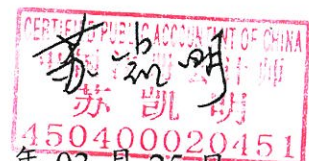 CERTIFIED PUBLIC ACCOUNTANT OF CHINA
中国注册会计师
苏凯明
苏凯明
450400020451
年 03 月 25 日